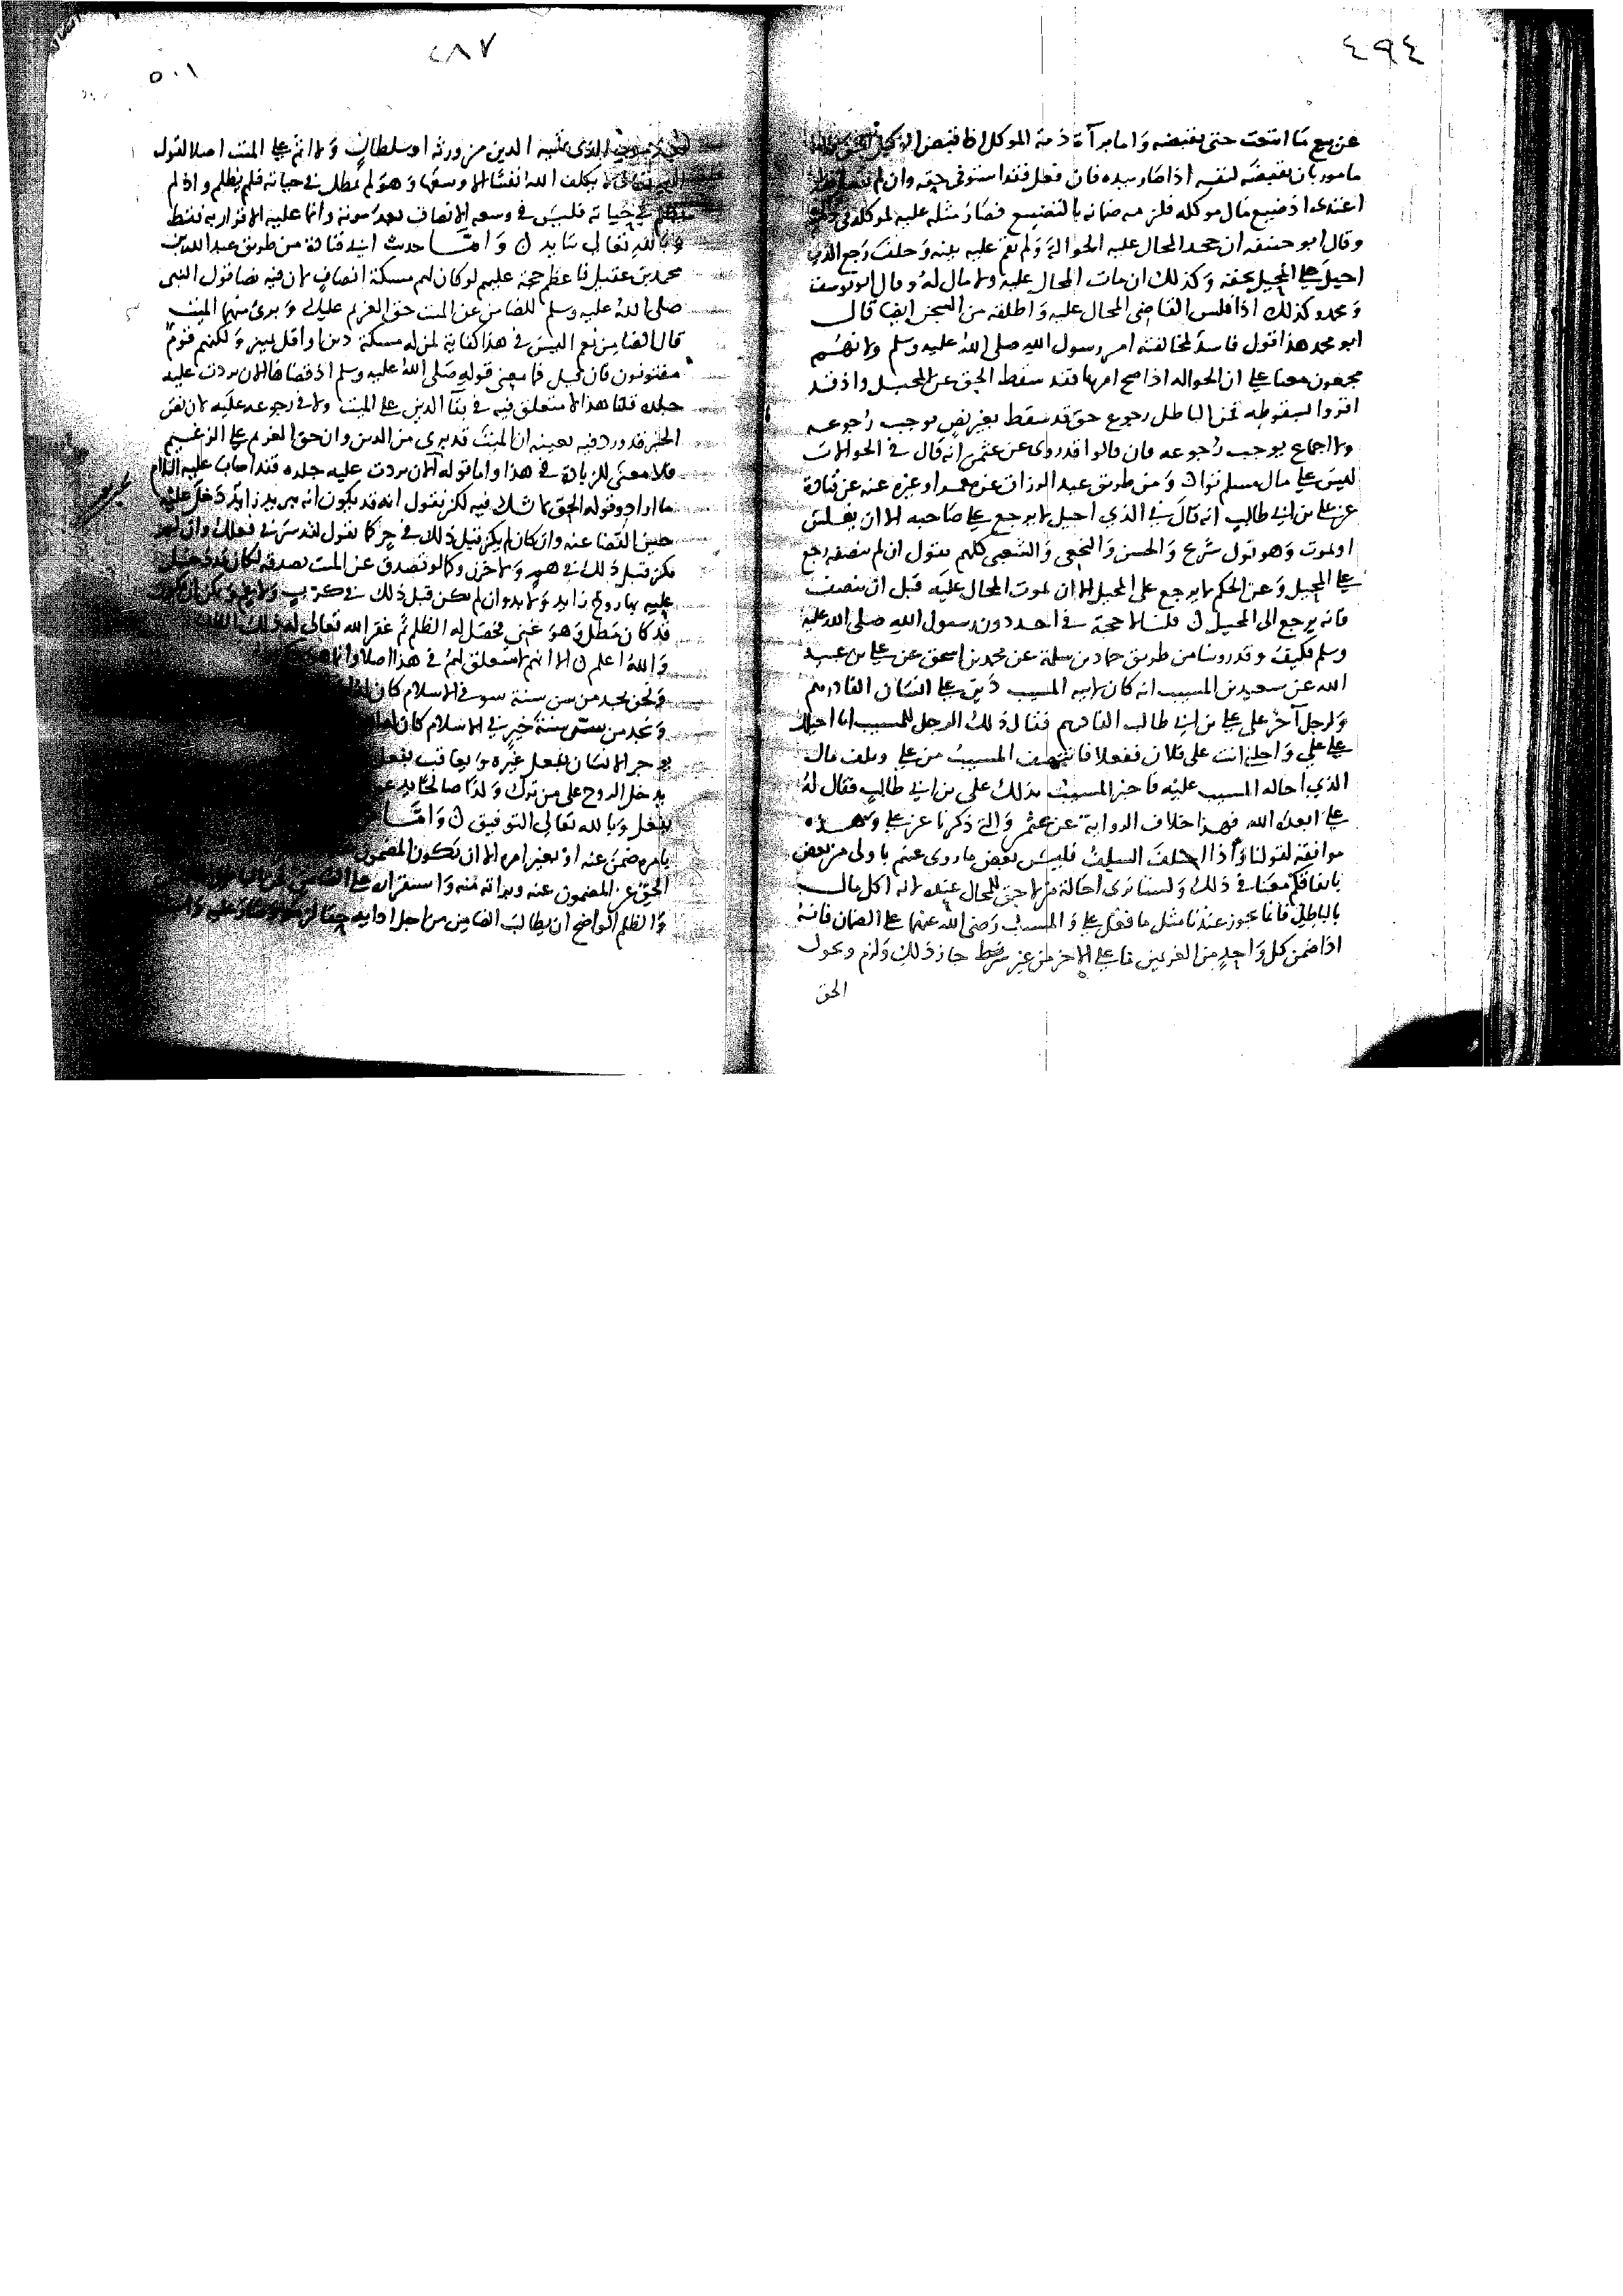 ٤٩٤
عن بيع ما ابتعت حتى يقبضه وامابراة ذمة الموكل اذا قبض الوكيل
مامور بان يقبضه لنفسه اذا صار بيده فان فعل فقد استوفى حقه وان لم يفعل فقد
اعتدى اذ ضيع مال موكله فلزمه ضمانه بالتضييع فصار مثله عليه لموكله في ذمته
وقال ابو حنيفه ان جحد المحال عليه الحوالة ولم تقم عليه بينه وحلف رجع الذي
احيل على المحيل بحقه وكذلك ان مات المحال عليه ولا مال له وقال ابو يوسف
ومحمد وكذلك اذا فلس القاضي المحال عليه واطلقه من السجن ايضا قال
ابو محمد هذا قول فاسد لمخالفته امر رسول الله صلى الله عليه وسلم ولانهم
مجمعون معنا على ان الحواله اذا صح امرها فقد سقط الحق عن المحيل واذ قد
اقروا بسقوطه فمن الباطل رجوع حق قد سقط بغير نص يوجب رجوعه
ولا اجماع يوجب رجوعه فان قالوا قد روى عن عثمن انه قال في الحوالات
ليس على مال مسلم توا ومن طريق عبد الرزاق عن معمر او غيره عنه عن قتادة
عن علي بن ابي طالب انه قال في الذي احيل لا يرجع على صاحبه الا ان يفلس
او يموت وهو قول شريح والحسن والنخعي والشعبي كلهم يقول ان لم ينصفه رجع
على المحيل وعن الحكم لا يرجع على المحيل الا ان يموت المحال عليه قبل ان ينصف
فانه يرجع الى المحيل قلنا لا حجة في احد دون رسول الله صلى الله عليه
وسلم فكيف وقد روينا من طريق حماد بن سلمة عن محمد بن اسحق عن علي بن عبيد
الله عن سعيد بن المسيب انه كان لابيه المسيب دين على انسان الفا درهم
ولرجل آخر على علي بن ابي طالب الفا درهم فقال ذلك الرجل للمسيب انا احيلك
على علي واحلني انت على فلان ففعلا فانتصف المسيب من علي وتلف مال
الذي احاله المسيب عليه فاخبر المسيب بذلك علي بن ابي طالب فقال له
علي ابعده الله فهذا خلاف الرواية عن عثمن والتي ذكرنا عن علي وهذه
موافقة لقولنا واذا اختلف السلف فليس بعض ما روي عنهم باولى من بعض
باتفاقكم معنا في ذلك ولسنا نرى احالة من لا حق للمحال عنده لانه اكل مال
بالباطل فانما يجوز عندنا مثل ما فعل علي والمسيب رضي الله عنهما على الضمان فانه
اذا ضمن كل واحد من الغريمين ما على الاخر من غير شرط جاز ذلك ولزم وتحول
الحق
٤٨٧
٥٠١
الذي عليه الدين من ورثه او سلطان ولا اثم على الميت اصلا لقول
الله تعالى لا يكلف الله نفسا الا وسعها وهو لم يمطل في حياته فلم يظلم واذ لم
يمطل في حياته فليس في وسعه الانصاف بعد موته وانما عليه الاقرار به فقط
وبالله تعالى نتايد واما حديث ابي قتادة من طريق عبد الله بن
محمد بن عقيل فاعظم حجة عليهم لو كان لهم مسكة انصاف لان فيه نصا قول النبي
صلى الله عليه وسلم للضامن عن الميت حق الغريم عليك وبرئ منهما الميت
قال الضامن نعم اليس في هذا كفاية لمن له مسكة دين او اقل تمييز ولكنهم قوم
مفتونون فان قيل فما معنى قوله صلى الله عليه وسلم اذ قضاها الان بردت عليه
جلده قلنا هذا لا متعلق فيه في بقا الدين على الميت ولا في رجوعه عليه لان نص
الخبر قد ورد فيه بعينه ان الميت قد بري من الدين وان حق الغريم على الزعيم
فلا معنى للزيادة في هذا واما قوله الان بردت عليه جلده فقد اصاب عليه السلام
ما اراد وقوله الحق لا شك فيه لكن نقول انه قد يكون انه برد زايد دخل عليه
حين القضا عنه وان كان لم يكن قبل ذلك في حر كما نقول لقد سرني فعلك وان لم
تكن قبل ذلك في هم ولا حزن وكما لو تصدق عن الميت بصدقه لكان قد دخل
عليه بها روح زايد ولا بد وان لم يكن قبل ذلك في كرب
قد كان مطل وهو غني فحصل له الظلم ثم غفر الله تعالى له
والله اعلم الا انهم لا متعلق لهم في هذا اصلا وانما
ونحن نجد من سن سنة سو في الاسلام كان
ونجد من سن سنة خير في الاسلام كان
يوجر الانسان بفعل غيره ويعاقب بفعل
يدخل الروح على من ترك ولدا صالحا
وبالله تعالى التوفيق واما
بامره ضمن عنه او بغير امره الا ان يكون المضمون
الحق عن المضمون عنه وبراته منه واستقراره على الضامن
والظلم الواضح ان يطالب الضامن من اجل ادايه حقا